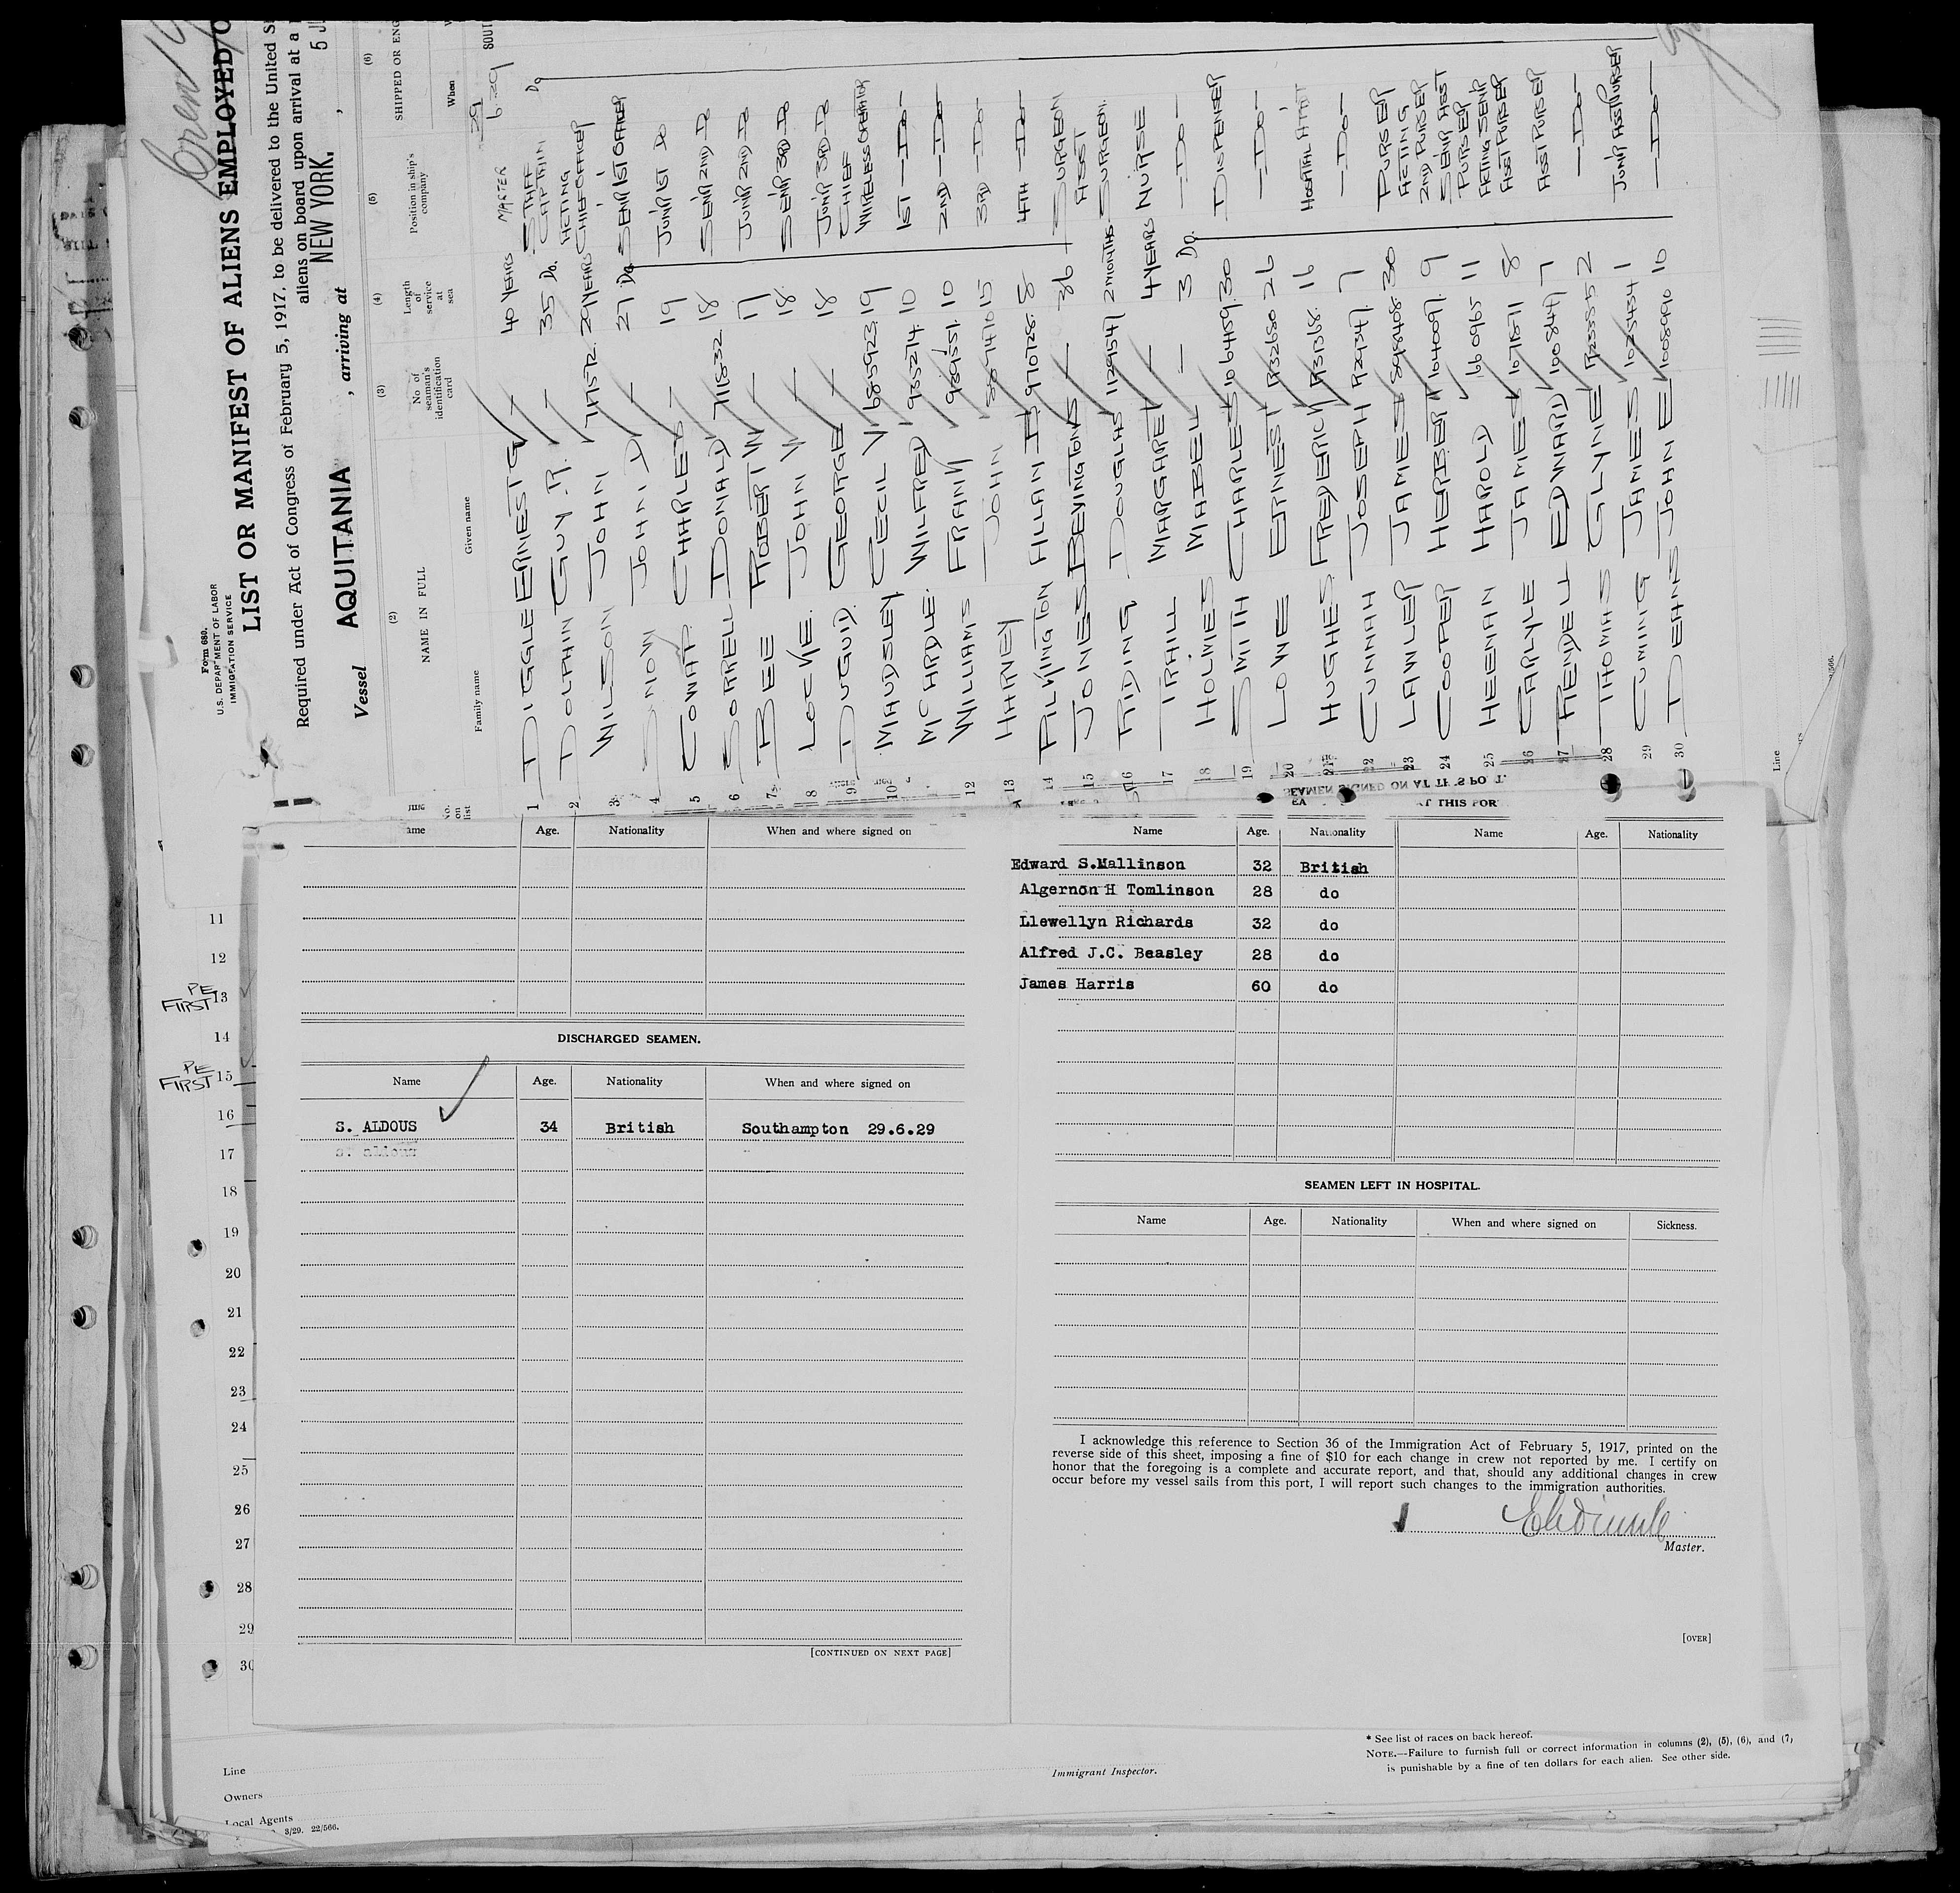 Form 680.
U.S. DEPARTMENT OF LABOR
IMMIGRATION SERVICE
LIST OR MANIFEST OF ALIENS EMPLOYED
Required under Act of Congress of February 5, 1917, to be delivered to the United
aliens on board upon arrival at a
Vessel AQUITANIA , arriving at NEW YORK. , 5
(2) (3) (4) (5) (6)
No. on list
NAME IN FULL
Family name Given name
No. of seaman's identification card
Length of service at sea
Position in ship's company
SHIPPED OR ENG
When
1 DIGGLE ERNEST G. — 40 YEARS MASTER
2 DOLPHIN GUY R. — 35 Do. STAFF CAPTAIN Do
3 WILSON JOHN 711572 29 YEARS ACTING CHIEF OFFICER
4 SNOW JOHN D — 27 Do SENR 1ST OFFICER
5 COWAP CHARLES — 19 JUNR 1ST Do
6 SORRELL DONALD 711832 18 SENR 2ND Do
7 BEE ROBERT W — 17 JUNR 2ND Do
8 LOCKE JOHN W — 18 SENR 3RD Do
9 DUGUID. GEORGE — 18 JUNR 3RD Do
10 MAUDSLEY CECIL V 685923 19 CHIEF WIRELESS OPERATOR
MCARDLE. WILFRED 935274 10 1ST —Do—
12 WILLIAMS FRANK 10 2ND —Do—
13 HARVEY JOHN 15 3RD —Do—
14 PILKINGTON ALLAN 970728 8 4TH —Do—
15 JONES BEVINGTON S — 36 SURGEON
16 RIDING DOUGLAS 1129547 2 MONTHS ASST SURGEON.
17 TRAILL MARGARET — 4 YEARS NURSE
18 HOLMES MABEL — 3 Do. —Do—
19 SMITH CHARLES 1064459 30 DISPENSER
20 LOWE ERNEST R32680 26 —Do—
21 HUGHES FREDERICK R31368 16 HOSPITAL ATTDT
22 CUNNAH JOSEPH R29347 7 —Do—
23 LAWLER JAMES 898408 30 PURSER
24 COOPER HERBERT 1104097 9 ACTING 2ND PURSER
25 HEENAN HAROLD 660965 11 SENR ASST PURSER
26 CARLYLE JAMES 1071871 8 ACTING SENR ASST PURSER
27 RENDELL EDWARD 1008447 7 ASST PURSER
28 THOMAS GLYNE R23555 2 —Do—
29 CUMING JAMES 1025434 1 JUNR ASST PURSER
30 DEANS JOHN E 1008690 10 —Do—
Line
SEAMEN SIGNED ON AT THIS PORT.
Age. Nationality When and where signed on
Name Age. Nationality Name Age. Nationality
Edward S.Mallinson 32 British
Algernon H Tomlinson 28 do
Llewellyn Richards 32 do
Alfred J.C. Beasley 28 do
James Harris 60 do
DISCHARGED SEAMEN.
Name Age. Nationality When and where signed on
S. ALDOUS 34 British Southampton 29.6.29
SEAMEN LEFT IN HOSPITAL.
Name Age. Nationality When and where signed on Sickness.
I acknowledge this reference to Section 36 of the Immigration Act of February 5, 1917, printed on the
reverse side of this sheet, imposing a fine of $10 for each change in crew not reported by me. I certify on
honor that the foregoing is a complete and accurate report, and that, should any additional changes in crew
occur before my vessel sails from this port, I will report such changes to the immigration authorities.
Master.
[CONTINUED ON NEXT PAGE]
[OVER]
11
12
PE FIRST 13
14
PE FIRST 15
16
17
18
19
20
21
22
23
24
25
26
27
28
29
30
Line
Owners
Local Agents
3/29. 22/566.
Immigrant Inspector.
* See list of races on back hereof.
NOTE.—Failure to furnish full or correct information in columns (2), (5), (6), and (7)
is punishable by a fine of ten dollars for each alien. See other side.